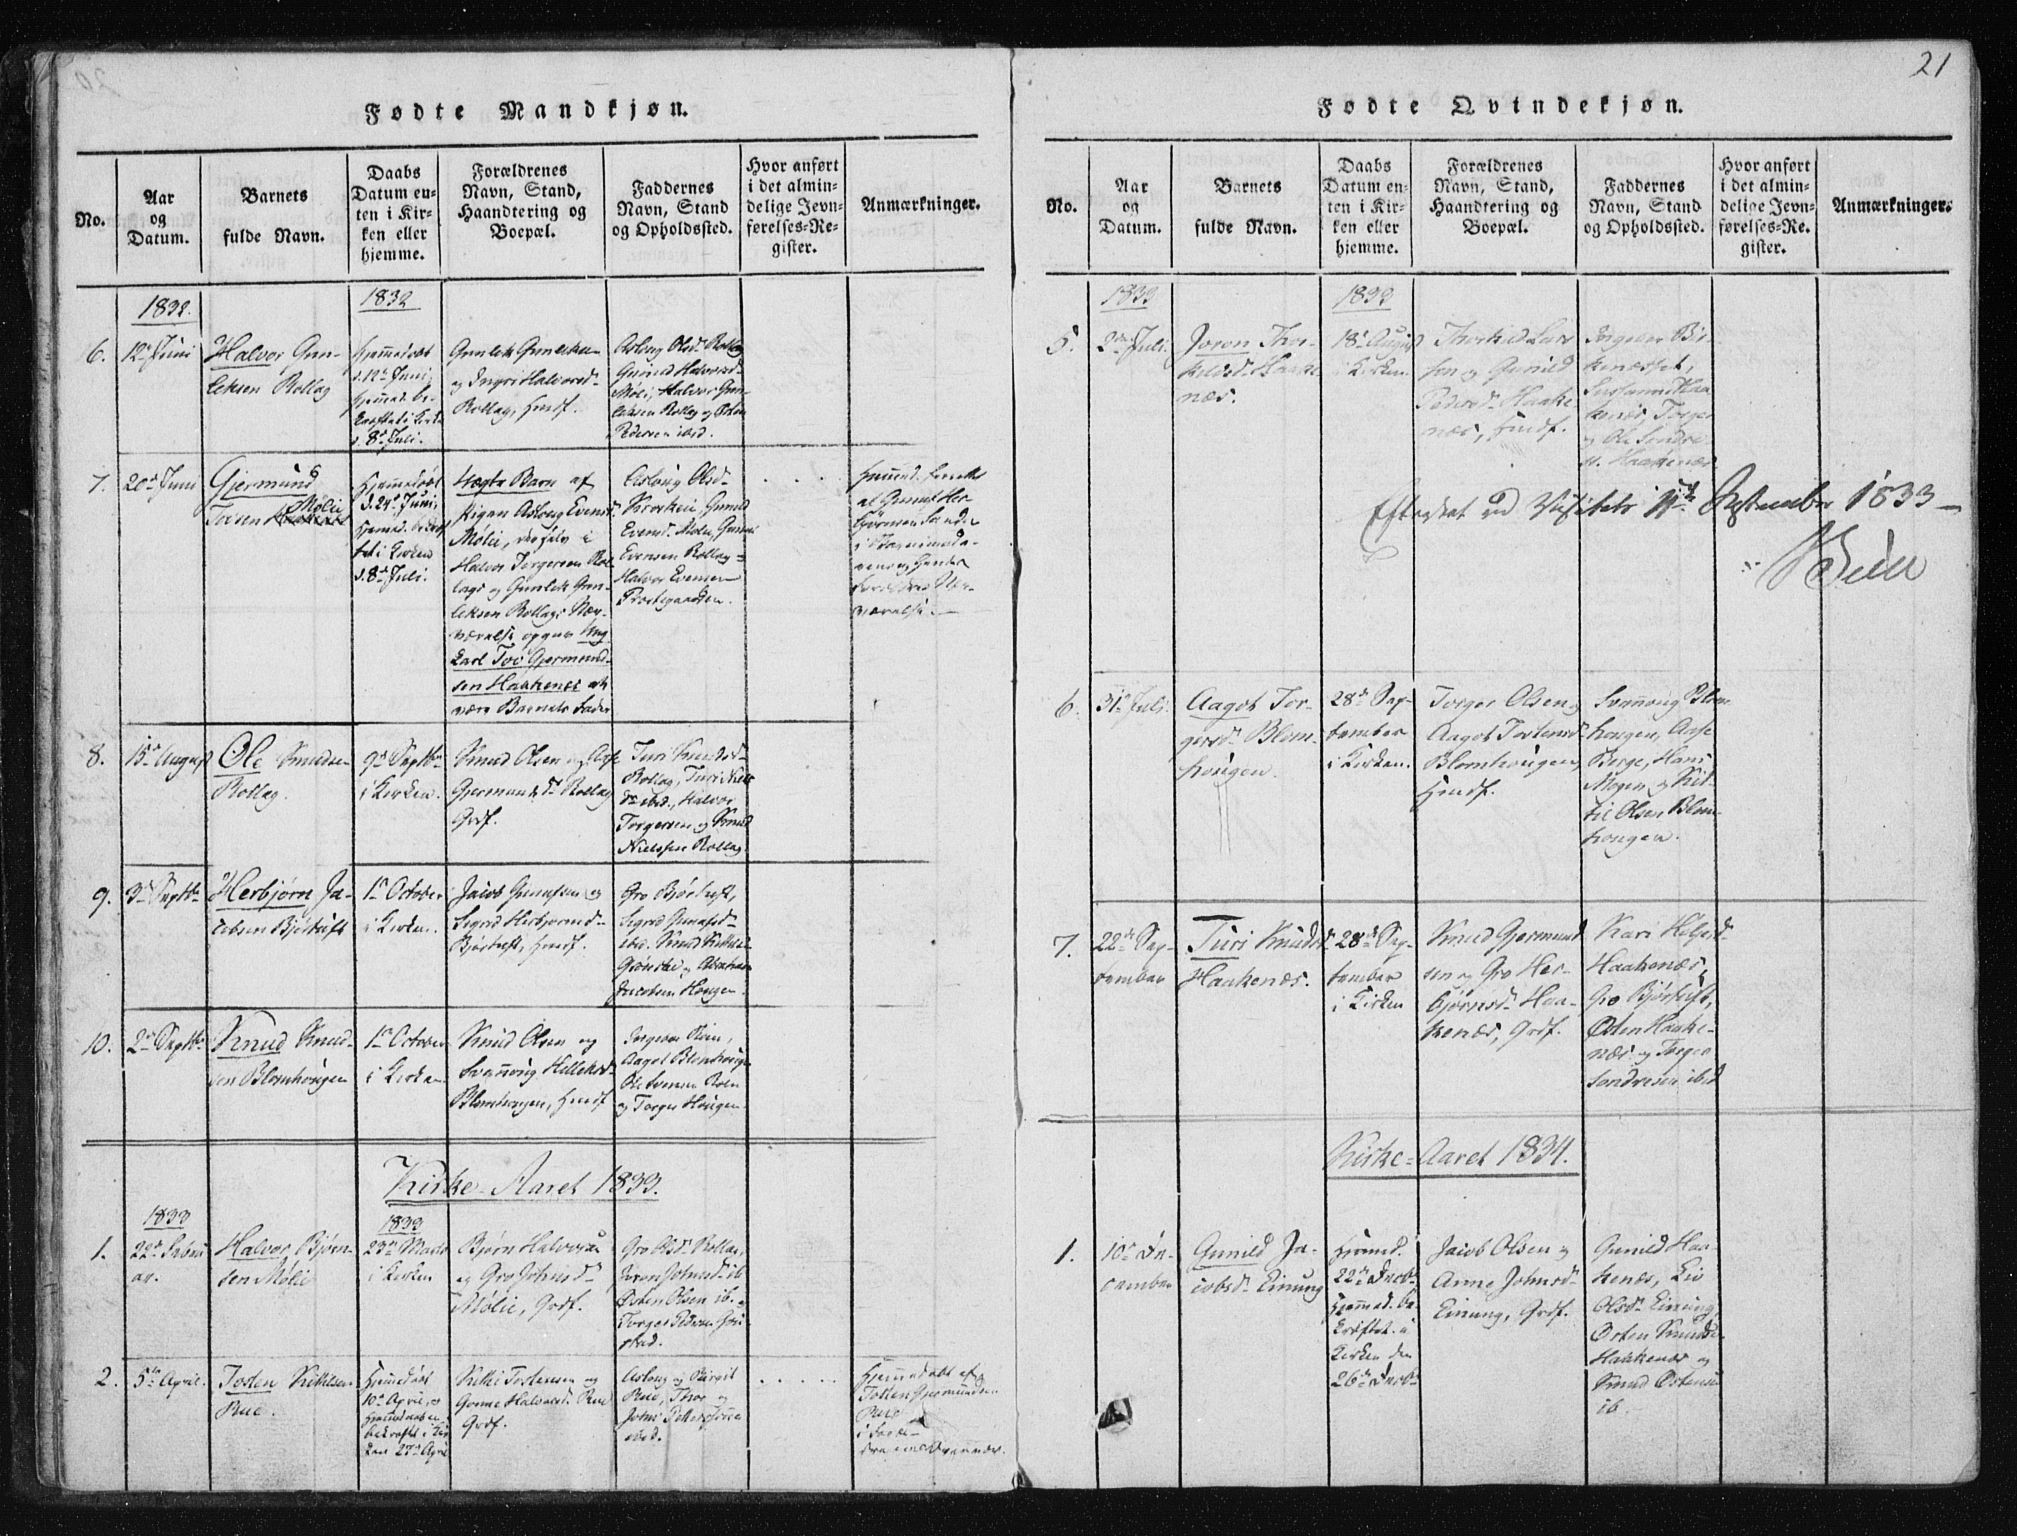 21
Fødte Mandkjøn.
No.
Aar
og
Datum.
Barnets
fulde Navn.
Daabs
Datum en-
ten i Kir-
ken eller
hjemme.
Forældrenes
Navn, Stand,
Haandtering og
Boepæl.
Faddernes
Navn, Stand
og Opholdssted.
Hvor anført
i det almin-
delige Jevn-
førelses-Re-
gister.
Anmærkninger.
1832.
1832
6.
12te Juni
Halvor Gun-
leksen Rollag
Hjemmedøbt
d. 12te Juni,
Hjemmed. be-
kræftet i Kirke
d. 8de Juli.
Gunlek Gunleksen
og Ingri Halvorsd.
Rollag, Huusf.
Asloug Olsd. Rollag
Gunild Halvorsd.
Møli, Halvor Gun-
leksen Rollag og Østen
Pedersen ibid.
7.
20de Juni
Gjermund
Toesen Mølie
Hjemmedøbt
d. 24de Juni,
Hjemmed. bekræf-
tet i Kirken
d. 8de Juli.
Uægte Barn af
Pigen Asloug Evensd.
Mølie, der selv i
Halvor Torgersen Rol-
lags og Gunlek Gun-
leksen Rollags Nær-
værelse opgav Ung-
karl Tov Gjermund-
sen Haakenæs at
være Barnets Fader
Asloug Olsd.
Kroken, Gunild
Evensd. Mølie, Gunnar
Evensen Rollag
Halvor Evensen
Præstegaarden.
8.
15de August
Ole Knudsen
Rollag.
9de Septbr.
i Kirken.
Knud Olsen og Aase
Gjermundsdr. Rollag
Grdf.
Turi Knudsd.
Rollag, Turi Niels
dr. ibid., Halvor
Torgersen og Knud
Nielssen Rollag.
9.
3de Septbr.
Herbjørn Ja-
cobsen Bjørtuft
1te October
i Kirken.
Jacob Gunulsen og
Sigrid Herbjørnsd.
Bjørtuft, Huusf.
Gro Bjørtuft,
Sigrid Gunulsd.
ibid. Knud Kittilsen
Grønslie og Abraham
Jacobsen Hougen.
10.
2de Septbr.
Knud Knud-
sen Blomhougen
1te October
i Kirken
Knud Olsen og
Svannoug Helleksd.
Blomhougen, Huusf.
Aagot Blomhougen
Ole Svensen
og Torger Hougen
Kirke-Aaret 1833.
1833
1833
1.
22de Febru
ar.
Halvor Bjørn-
sen Mølie
23de Marts
i Kirken
Bjørn Halvorsen
og Gro Johnsd.
Mølie, Grdf.
Gro Olsd. Rollag,
Joron Johnsd. ib.
Østen Olsen ib. og
Torger Pedersen
2.
5te April.
Tosten Kittilsen
Rue.
Hjemmedøbt
10de April, og
Hjemmedaaben
bekræftet i Kir
ken 27de April
Kittil Tostensen og
Gunne Halvorsd. Rue
Grdf.
Asloug og Birgit
Rue, Thor og
ibid.
Hjemmedøbt af
Tosten Gjermundsen
Rue
Fødte Qvindekjøn.
No.
Aar
og
Datum.
Barnets
fulde Navn.
Daabs
Datum en-
ten i Kir-
ken eller
hjemme.
Forældrenes
Navn, Stand,
Haandtering og
Boepæl.
Faddernes
Navn, Stand
og Opholdssted.
Hvor anført
i det almin-
delige Jevn-
førelses-Re-
gister.
Anmærkninger.
1833
1833
5.
2den Juli.
Joron Thor-
kildsd. Haake
næs.
18de August
i Kirken
Thorkild Lars
sen og Gunild
Pedersd. Haake
næs, Huusf.
Ingebor Bir-
kenæsset,
Susanna Haa
kenæs, Torger
og Ole Sondre
s. Haakenæs
Efterseet ved Visitats 11te September 1833 –
6.
31te Juli.
Aagot Tor-
gersd. Blom-
hougen.
28de Sep-
tember
i Kirken.
Torger Olsen og
Aagot Tostensd.
Blomhougen,
Huusf.
Svannoug Blom
hougen, Aase
Berge, Hans
Mogen og Kit-
til Olsen Blom
hougen.
7.
22de Sep-
tember
Turi Knudsd.
Haakenæs.
28de Sep-
tember
i Kirken
Knud Gjermund
sen og Gro Her-
bjørnsd. Haa-
kenæs, Grdf.
Kari Helgesd.
Haakenæs,
Gro Bjørtuft,
Østen Haake-
næs og Torger
Sondresen ibid
Kirke-Aaret 1834.
1.
10de De-
cember
Gunild Ja-
cobsd. Einung
Hjemmed.
22de Decbr.
Hjemmed. be-
kræftet i
Kirken den
26de Decbr.
Jacob Olsen og
Anne Johnsd.
Einung, Grdf.
Gunild Haa
kenæs, Liv
Olsd. Einung,
Østen Knudsen
Haakenæs og
Knud Østensen
ib.